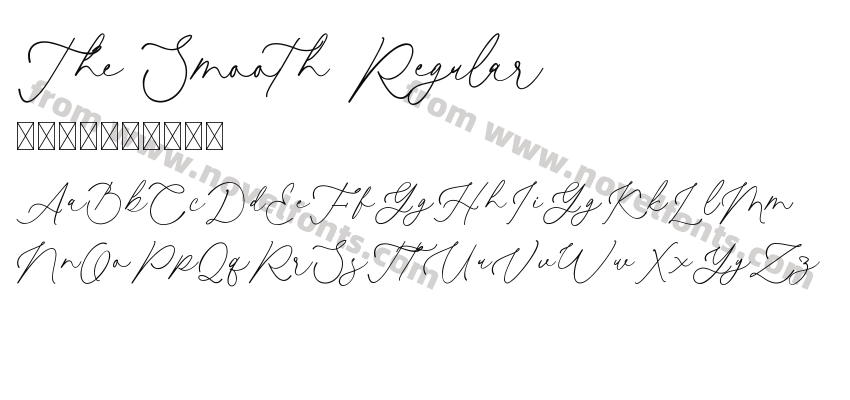 The Smooth Regular
AaBbCcDdEeFfGgHhIiJjKkLlMm
NnOoPpQqRrSsTtUuVvWwXxYyZz
from www.novelfonts.com
from www.novelfonts.com